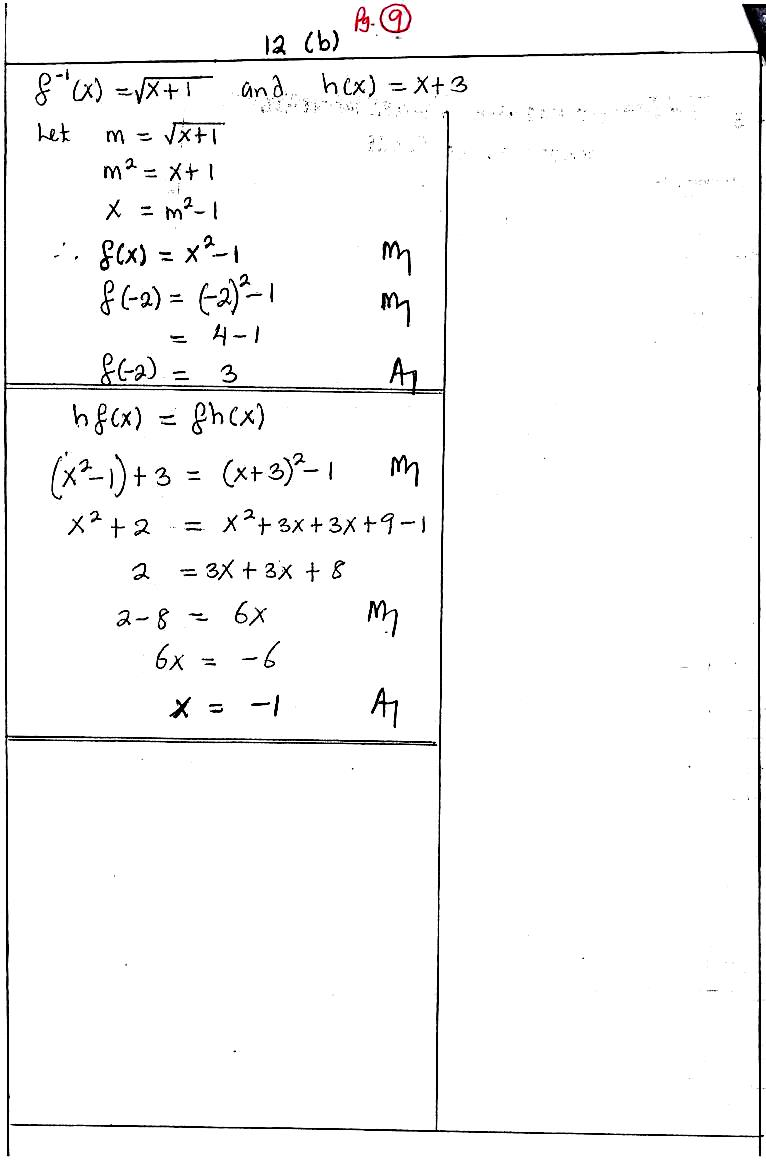 Pg. 9
12 (b)
f⁻¹(x) = √x+1 and h(x) = x+3
Let m = √x+1
m² = x+1
x = m²-1
∴ f(x) = x²-1 M1
f(-2) = (-2)²-1 M1
= 4-1
f(-2) = 3 A1
hf(x) = fh(x)
(x²-1)+3 = (x+3)²-1 M1
x²+2 = x²+3x+3x+9-1
2 = 3x+3x+8
2-8 = 6x M1
6x = -6
x = -1 A1